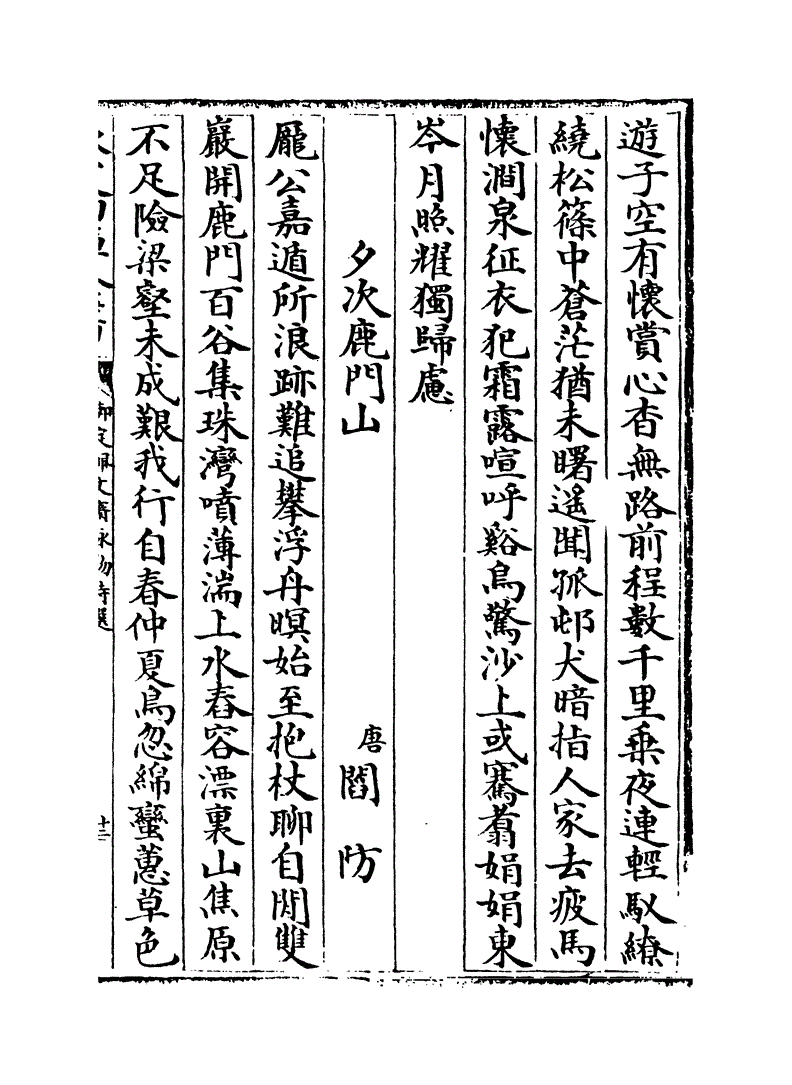 遊子空有懷賞心杳無路前程數千里乗夜連輕馭繚
繞松篠中蒼茫猶未曙遥聞孤邨犬暗指人家去疲馬
懷澗泉征衣犯霜露喧呼谿鳥驚沙上或騫翥娟娟東
岑月照耀獨歸慮
夕次鹿門山
唐 閻防
龎公嘉遁所浪跡難追攀浮舟暝始至抱杖聊自閒雙
巖開鹿門百谷集珠灣噴薄湍上水舂容漂裏山焦原
不足險梁壑未成艱我行自春仲夏鳥忽綿蠻蕙草色
御定佩文齋詠物詩選
十三